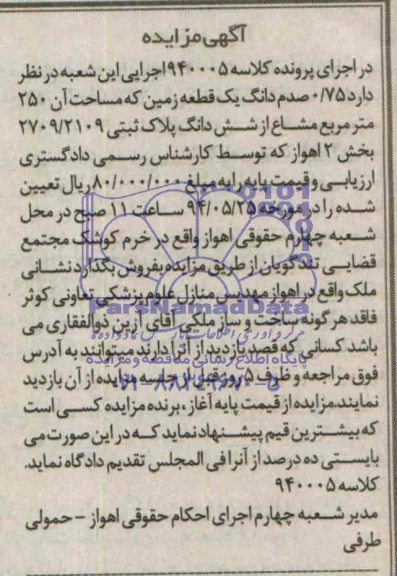 آگهی مزایده
در اجرای پرونده کلاسه ۹۴۰۰۰۵ اجرایی این شعبه در نظر
دارد ۰/۷۵ صدم دانگ یک قطعه زمین که مساحت آن ۲۵۰
متر مربع مشاع از شش دانگ پلاک ثبتی ۲۷۰۹/۲۱۰۹
بخش ۲ اهواز که توسط کارشناس رسمی دادگستری
ارزیابی و قیمت پایه را به مبلغ ۸۰/۰۰۰/۰۰۰ ریال تعیین
شده را در مورخه ۹۴/۰۵/۲۵ ساعت ۱۱ صبح در محل
شعبه چهارم حقوقی اهواز واقع در خرم کوشک مجتمع
قضایی تندگویان از طریق مزایده بفروش بگذارد نشانی
ملک واقع در اهواز مهدیس منازل علوم پزشکی تعاونی کوثر
فاقد هر گونه ساخت و ساز ملکی آقای آرین ذوالفقاری می
باشد کسانی که قصد بازدید از آنرا دارند میتوانند به آدرس
فوق مراجعه و ظرف ۵ روز قبل از جلسه مزایده از آن بازدید
نمایند. مزایده از قیمت پایه آغاز، برنده مزایده کسی است
که بیشترین قیم پیشنهاد نماید که در این صورت می
بایستی ده درصد از آنرا فی المجلس تقدیم دادگاه نماید.
کلاسه ۹۴۰۰۰۵
مدیر شعبه چهارم اجرای احکام حقوقی اهواز - حمولی
طرفی
ParsNamadData
پایگاه اطلاع رسانی مناقصه و مزایده